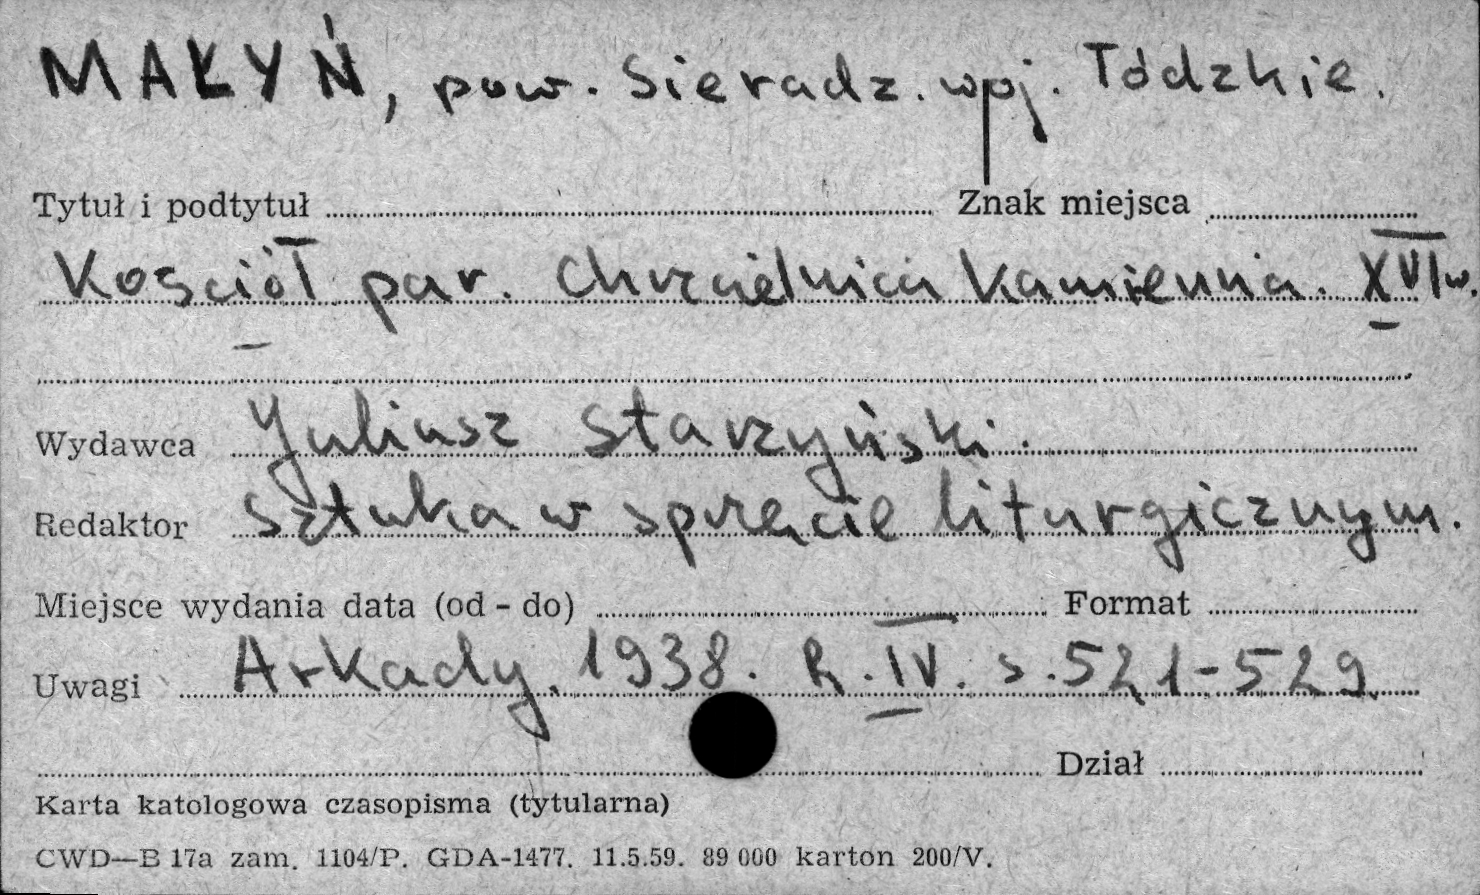 MAŁYŃ, pow. Sieradz. woj. Łódzkie.
Tytuł i podtytuł Znak miejsca
Kościół par. Chrzcielnica kamienna. XVI w.
Wydawca Juliusz Starzyński.
Redaktor Sztuka w sprzęcie liturgicznym.
Miejsce wydania data (od - do) Format
Uwagi Arkady. 1938. R. IV. s. 521-529.
Dział
Karta katologowa czasopisma (tytularna)
CWD—B 17a zam. 1104/P. GDA-1477. 11.5.59. 89 000 karton 200/V.